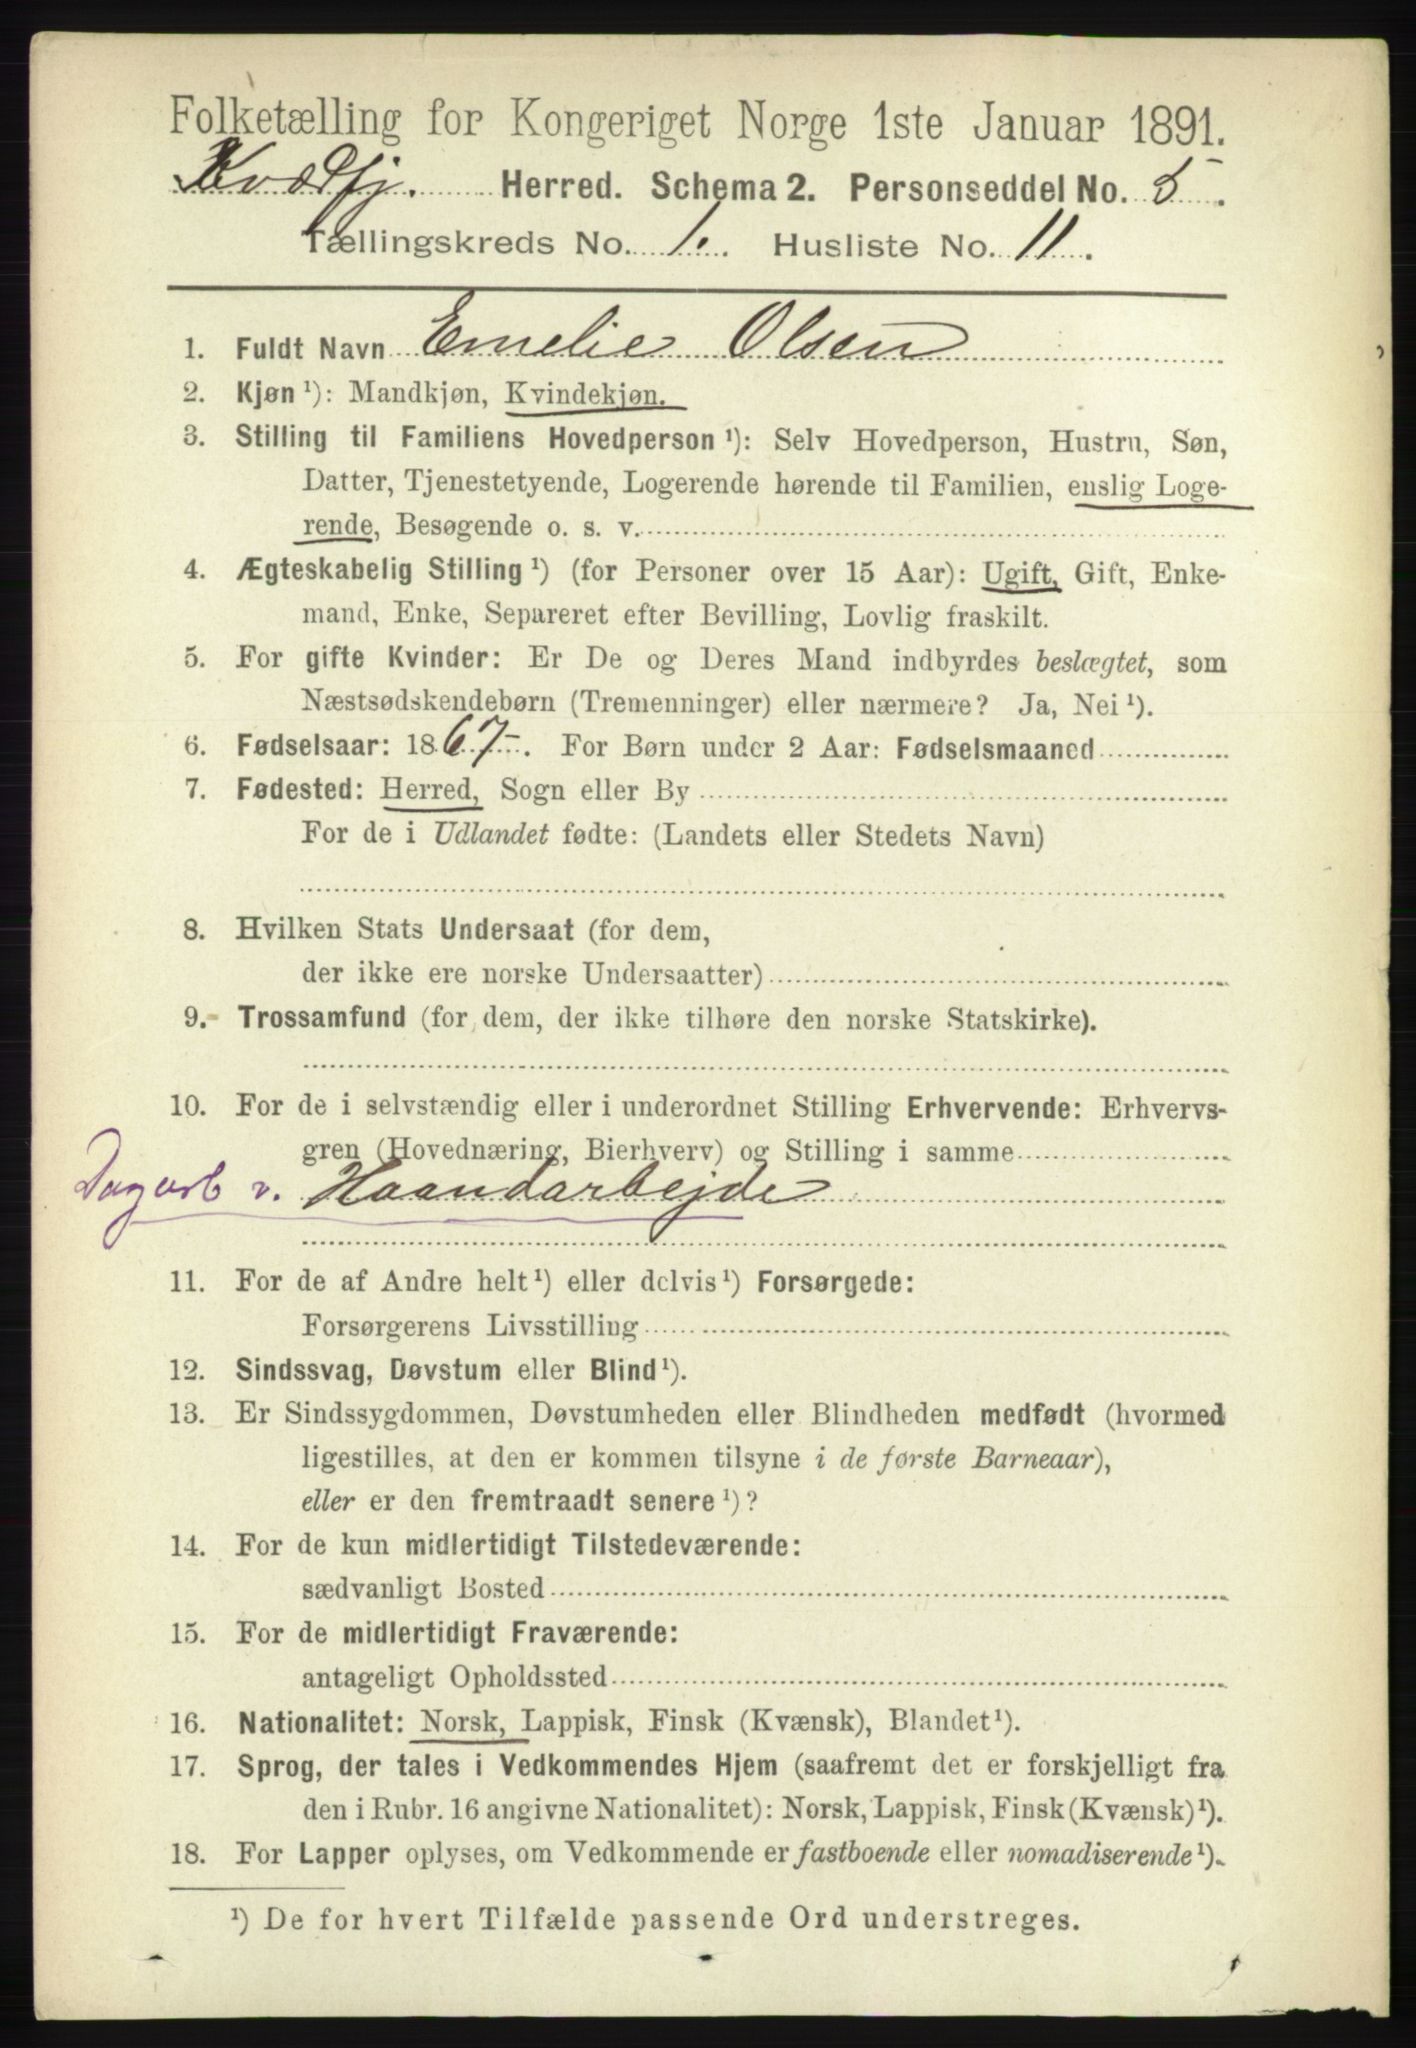 Folketælling for Kongeriget Norge 1ste Januar 1891.
Kvædfj. Herred. Schema 2. Personseddel No. 5.
Tællingskreds No. 1. Husliste No. 11.
1. Fuldt Navn Emelie Olsen
2. Kjøn ¹): Mandkjøn, Kvindekjøn.
3. Stilling til Familiens Hovedperson ¹): Selv Hovedperson, Hustru, Søn,
Datter, Tjenestetyende, Logerende hørende til Familien, enslig Loge-
rende, Besøgende o. s. v.
4. Ægteskabelig Stilling ¹) (for Personer over 15 Aar): Ugift, Gift, Enke-
mand, Enke, Separeret efter Bevilling, Lovlig fraskilt.
5. For gifte Kvinder: Er De og Deres Mand indbyrdes beslægtet, som
Næstsødskendebørn (Tremenninger) eller nærmere? Ja, Nei ¹).
6. Fødselsaar: 1867. For Børn under 2 Aar: Fødselsmaaned
7. Fødested: Herred, Sogn eller By
For de i Udlandet fødte: (Landets eller Stedets Navn)
8. Hvilken Stats Undersaat (for dem,
der ikke ere norske Undersaatter)
9. Trossamfund (for dem, der ikke tilhøre den norske Statskirke).
10. For de i selvstændig eller i underordnet Stilling Erhvervende: Erhvervs-
gren (Hovednæring, Bierhverv) og Stilling i samme
Dagarb v. Haandarbejde
11. For de af Andre helt ¹) eller delvis ¹) Forsørgede:
Forsørgerens Livsstilling
12. Sindssvag, Døvstum eller Blind ¹).
13. Er Sindssygdommen, Døvstumheden eller Blindheden medfødt (hvormed
ligestilles, at den er kommen tilsyne i de første Barneaar),
eller er den fremtraadt senere ¹)?
14. For de kun midlertidigt Tilstedeværende:
sædvanligt Bosted
15. For de midlertidigt Fraværende:
antageligt Opholdssted
16. Nationalitet: Norsk, Lappisk, Finsk (Kvænsk), Blandet ¹).
17. Sprog, der tales i Vedkommendes Hjem (saafremt det er forskjelligt fra
den i Rubr. 16 angivne Nationalitet): Norsk, Lappisk, Finsk (Kvænsk) ¹).
18. For Lapper oplyses, om Vedkommende er fastboende eller nomadiserende ¹).
¹) De for hvert Tilfælde passende Ord understreges.